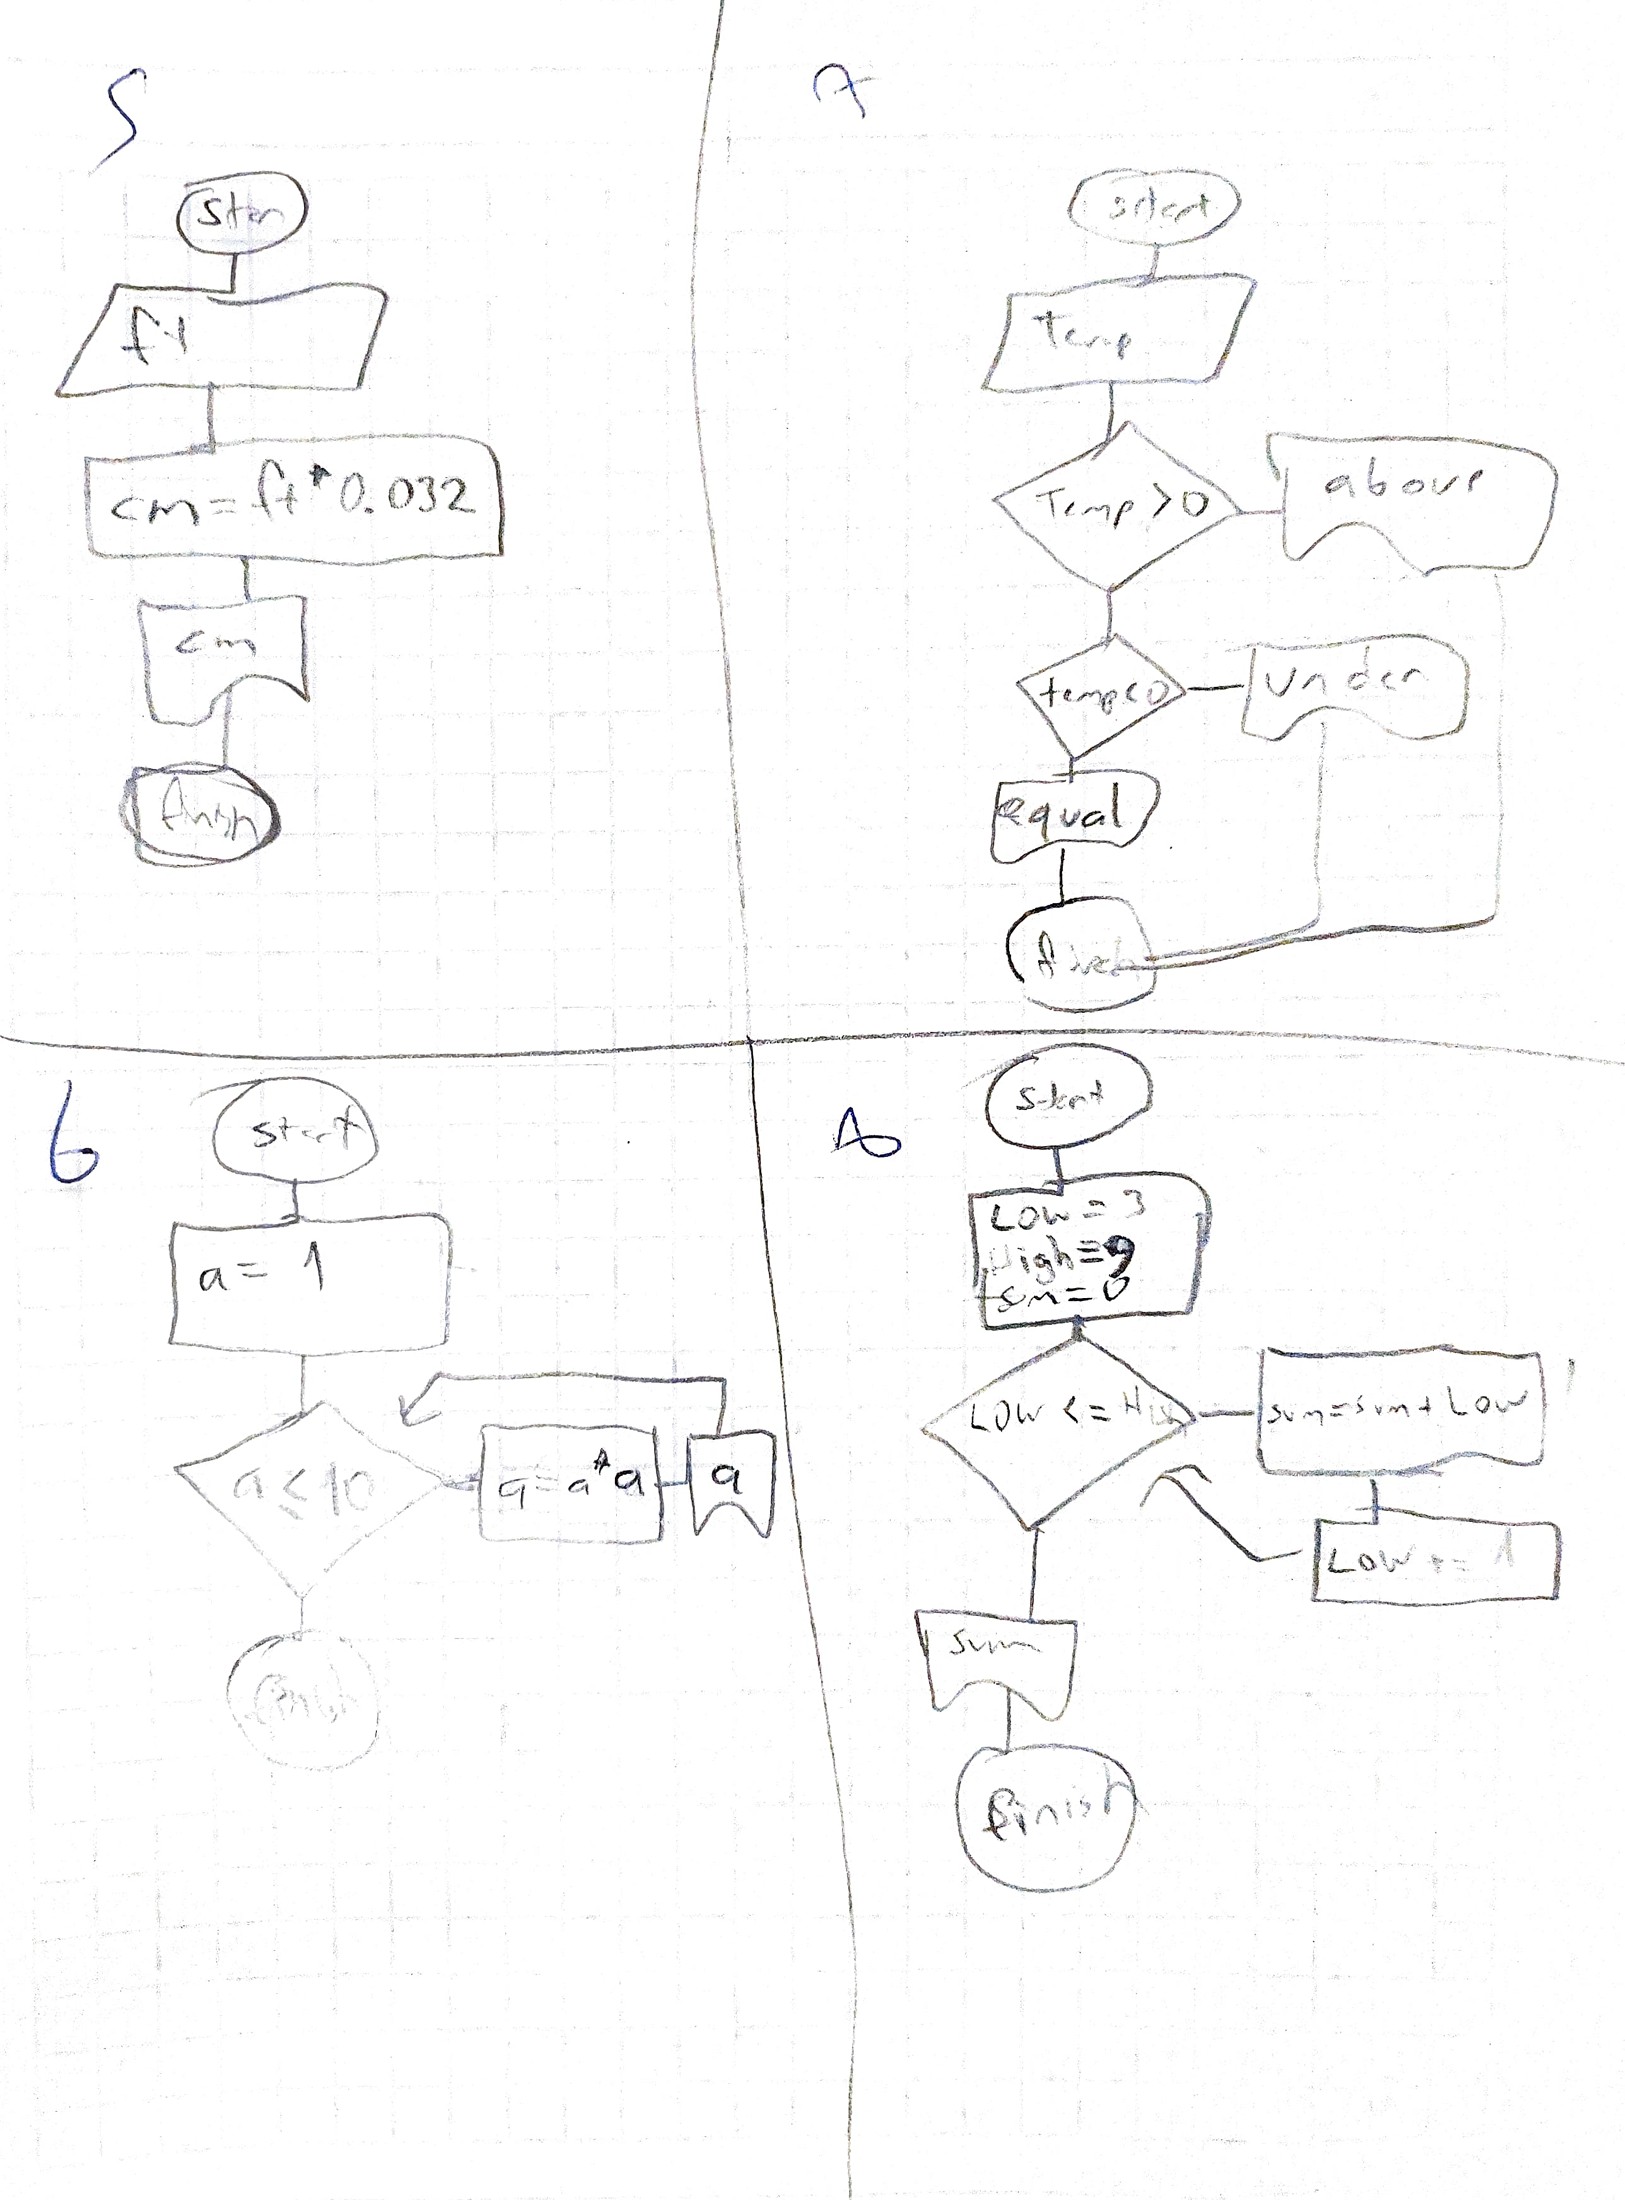 5
start
ft
cm = ft * 0.032
cm
finish
7
start
Temp
Temp > 0
above
temp < 0
under
equal
finish
6
start
a = 1
a ≤ 10
a = a * a
a
finish
start
Low = 3
High = 9
sum = 0
Low <= High
sum = sum + Low
Low += 1
sum
finish